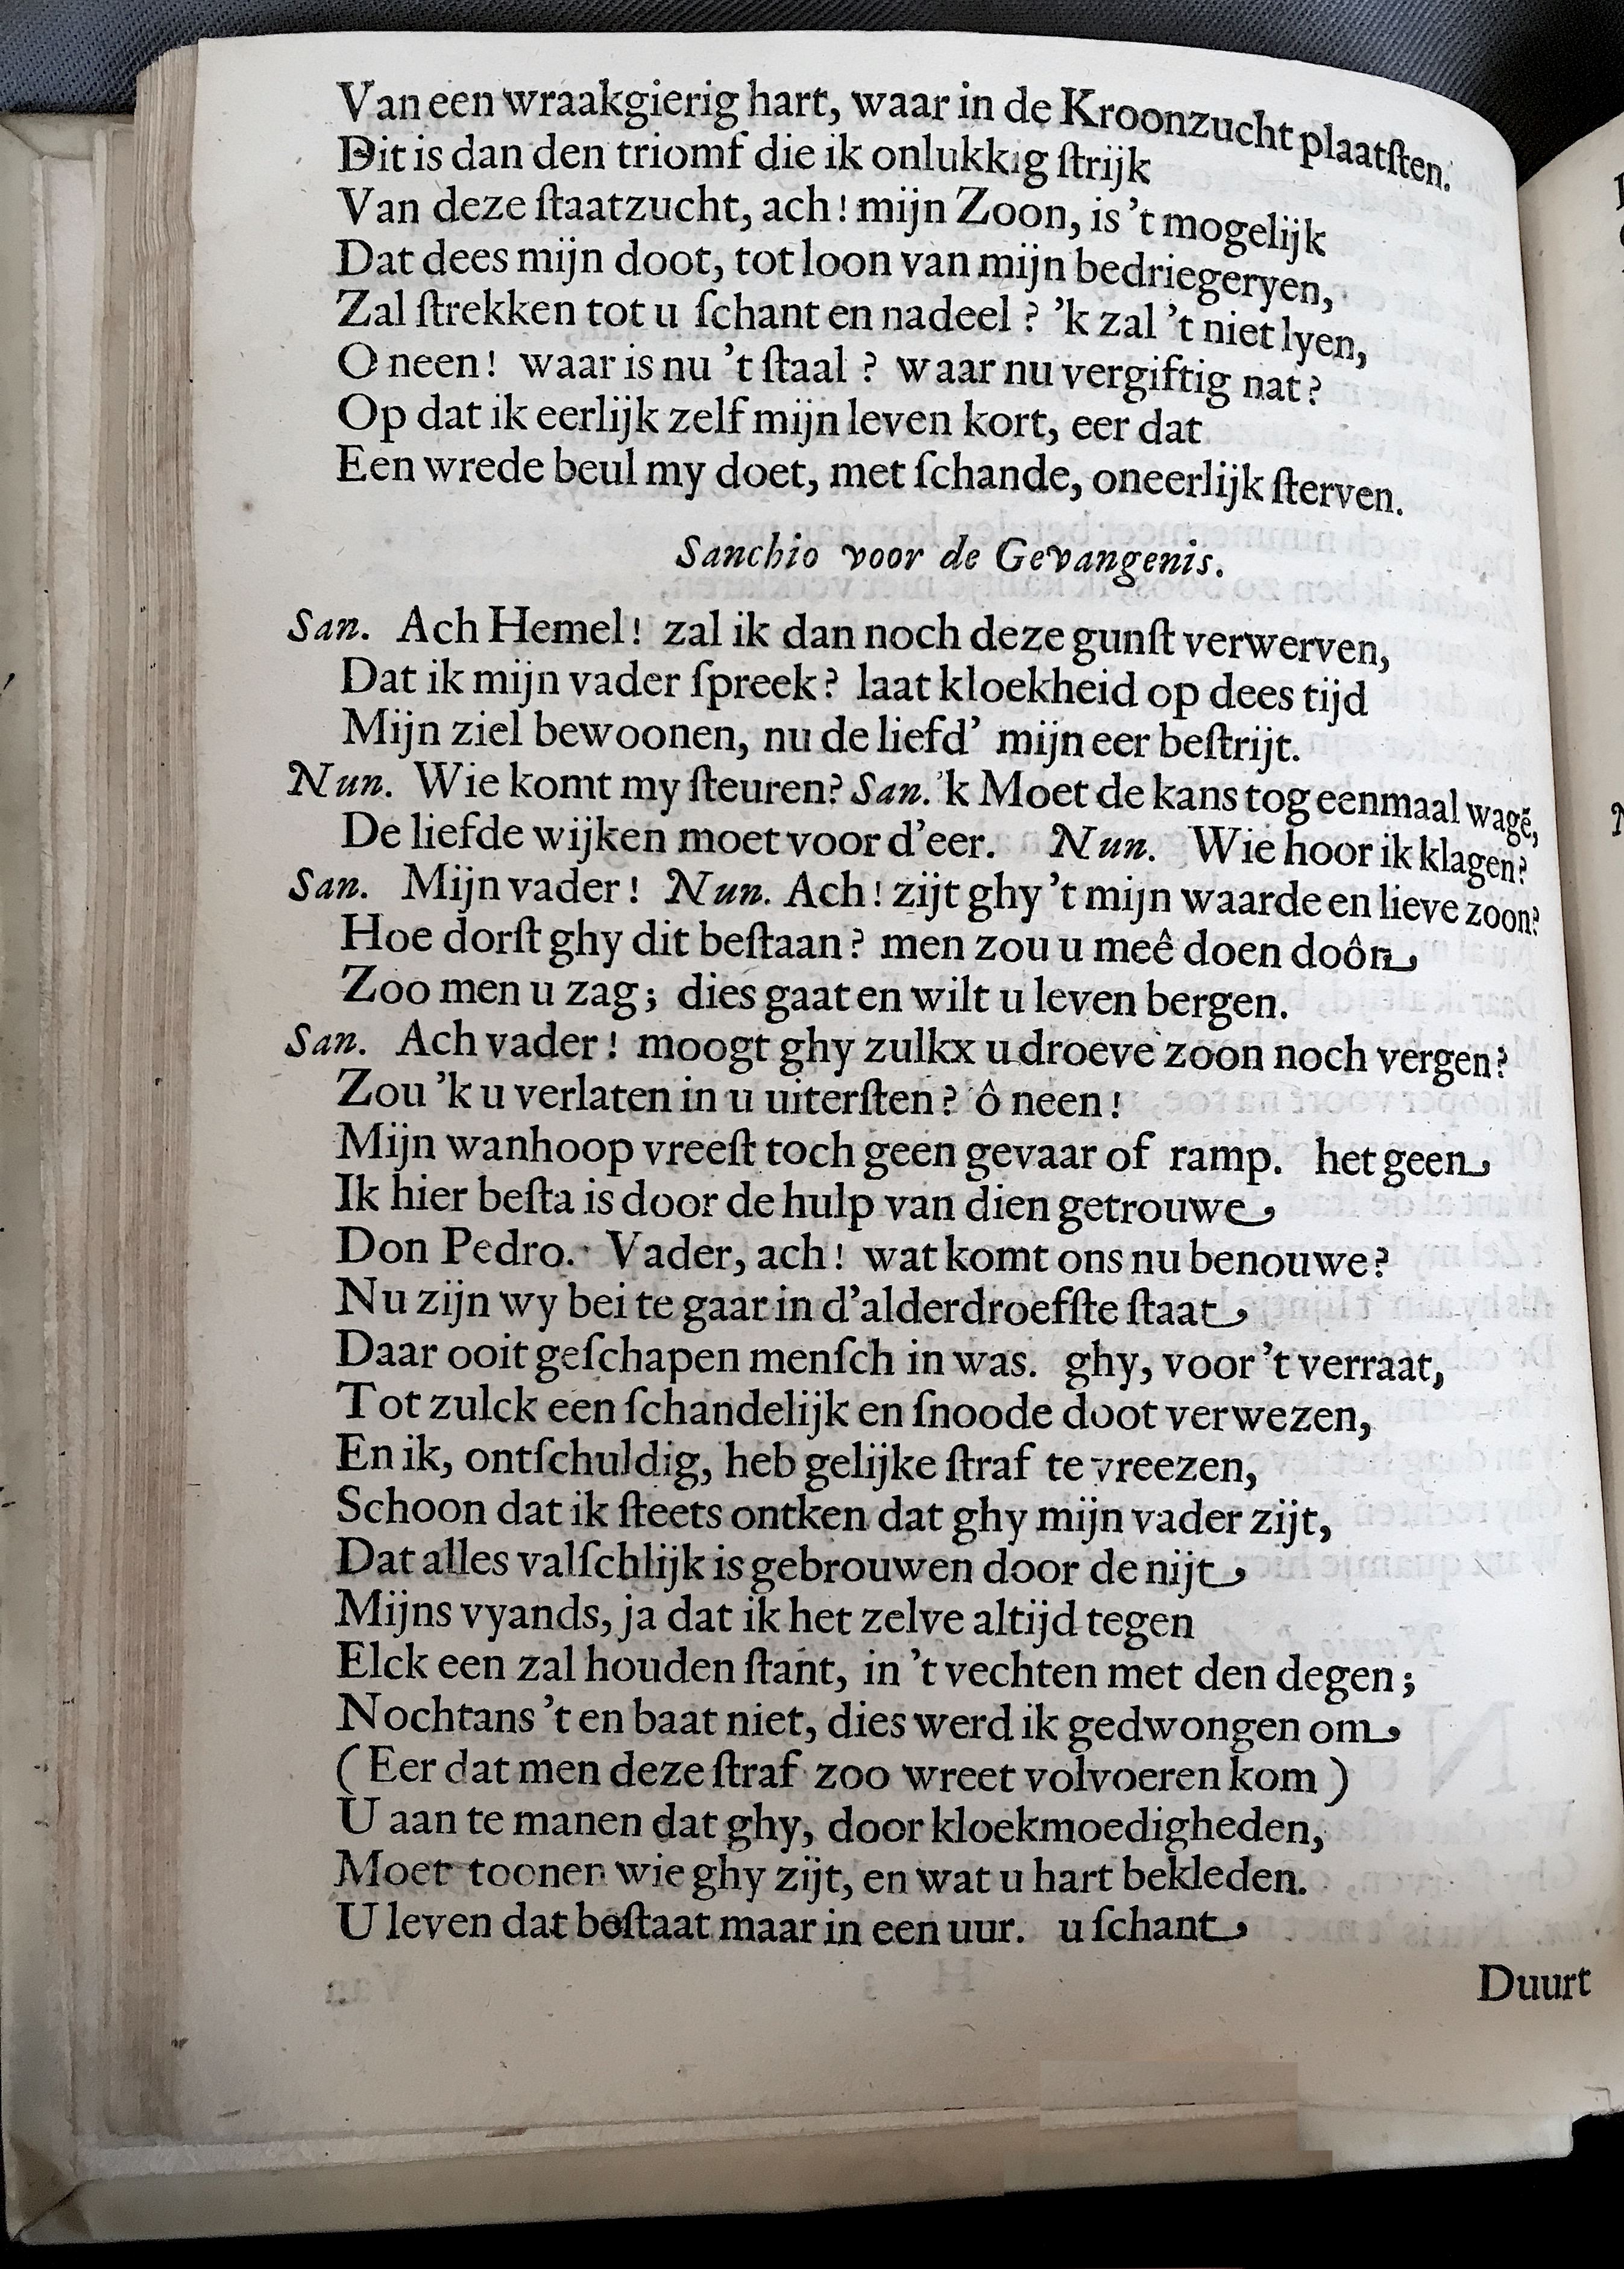 Van een wraakgierig hart, waar in de Kroonzucht plaatſten.
Dit is dan den triomf die ik onlukkig ſtrijk
Van deze ſtaatzucht, ach! mijn Zoon, is 't mogelijk
Dat dees mijn doot, tot loon van mijn bedriegeryen,
Zal ſtrekken tot u ſchant en nadeel? 'k zal 't niet lyen,
O neen! waar is nu 't ſtaal? waar nu vergiftig nat?
Op dat ik eerlijk zelf mijn leven kort, eer dat
Een wrede beul my doet, met ſchande, oneerlijk ſterven.
Sanchio voor de Gevangenis.
San. Ach Hemel! zal ik dan noch deze gunſt verwerven,
Dat ik mijn vader ſpreek? laat kloekheid op dees tijd
Mijn ziel bewoonen, nu de liefd' mijn eer beſtrijt.
Nun. Wie komt my ſteuren? San. 'k Moet de kans tog eenmaal wagē,
De liefde wijken moet voor d'eer. Nun. Wie hoor ik klagen?
San. Mijn vader! Nun. Ach! zijt ghy 't mijn waarde en lieve zoon?
Hoe dorſt ghy dit beſtaan? men zou u meê doen doôn
Zoo men u zag; dies gaat en wilt u leven bergen.
San. Ach vader! moogt ghy zulkx u droeve zoon noch vergen?
Zou 'k u verlaten in u uiterſten? ô neen!
Mijn wanhoop vreeſt toch geen gevaar of ramp. het geen
Ik hier beſta is door de hulp van dien getrouwe
Don Pedro. Vader, ach! wat komt ons nu benouwe?
Nu zijn wy bei te gaar in d'alderdroefſte ſtaat
Daar ooit geſchapen menſch in was. ghy, voor 't verraat,
Tot zulck een ſchandelijk en ſnoode doot verwezen,
En ik, ontſchuldig, heb gelijke ſtraf te vreezen,
Schoon dat ik ſteets ontken dat ghy mijn vader zijt,
Dat alles valſchlijk is gebrouwen door de nijt
Mijns vyands, ja dat ik het zelve altijd tegen
Elck een zal houden ſtant, in 't vechten met den degen;
Nochtans 't en baat niet, dies werd ik gedwongen om
(Eer dat men deze ſtraf zoo wreet volvoeren kom)
U aan te manen dat ghy, door kloekmoedigheden,
Moet toonen wie ghy zijt, en wat u hart bekleden.
U leven dat beſtaat maar in een uur. u ſchant
Duurt